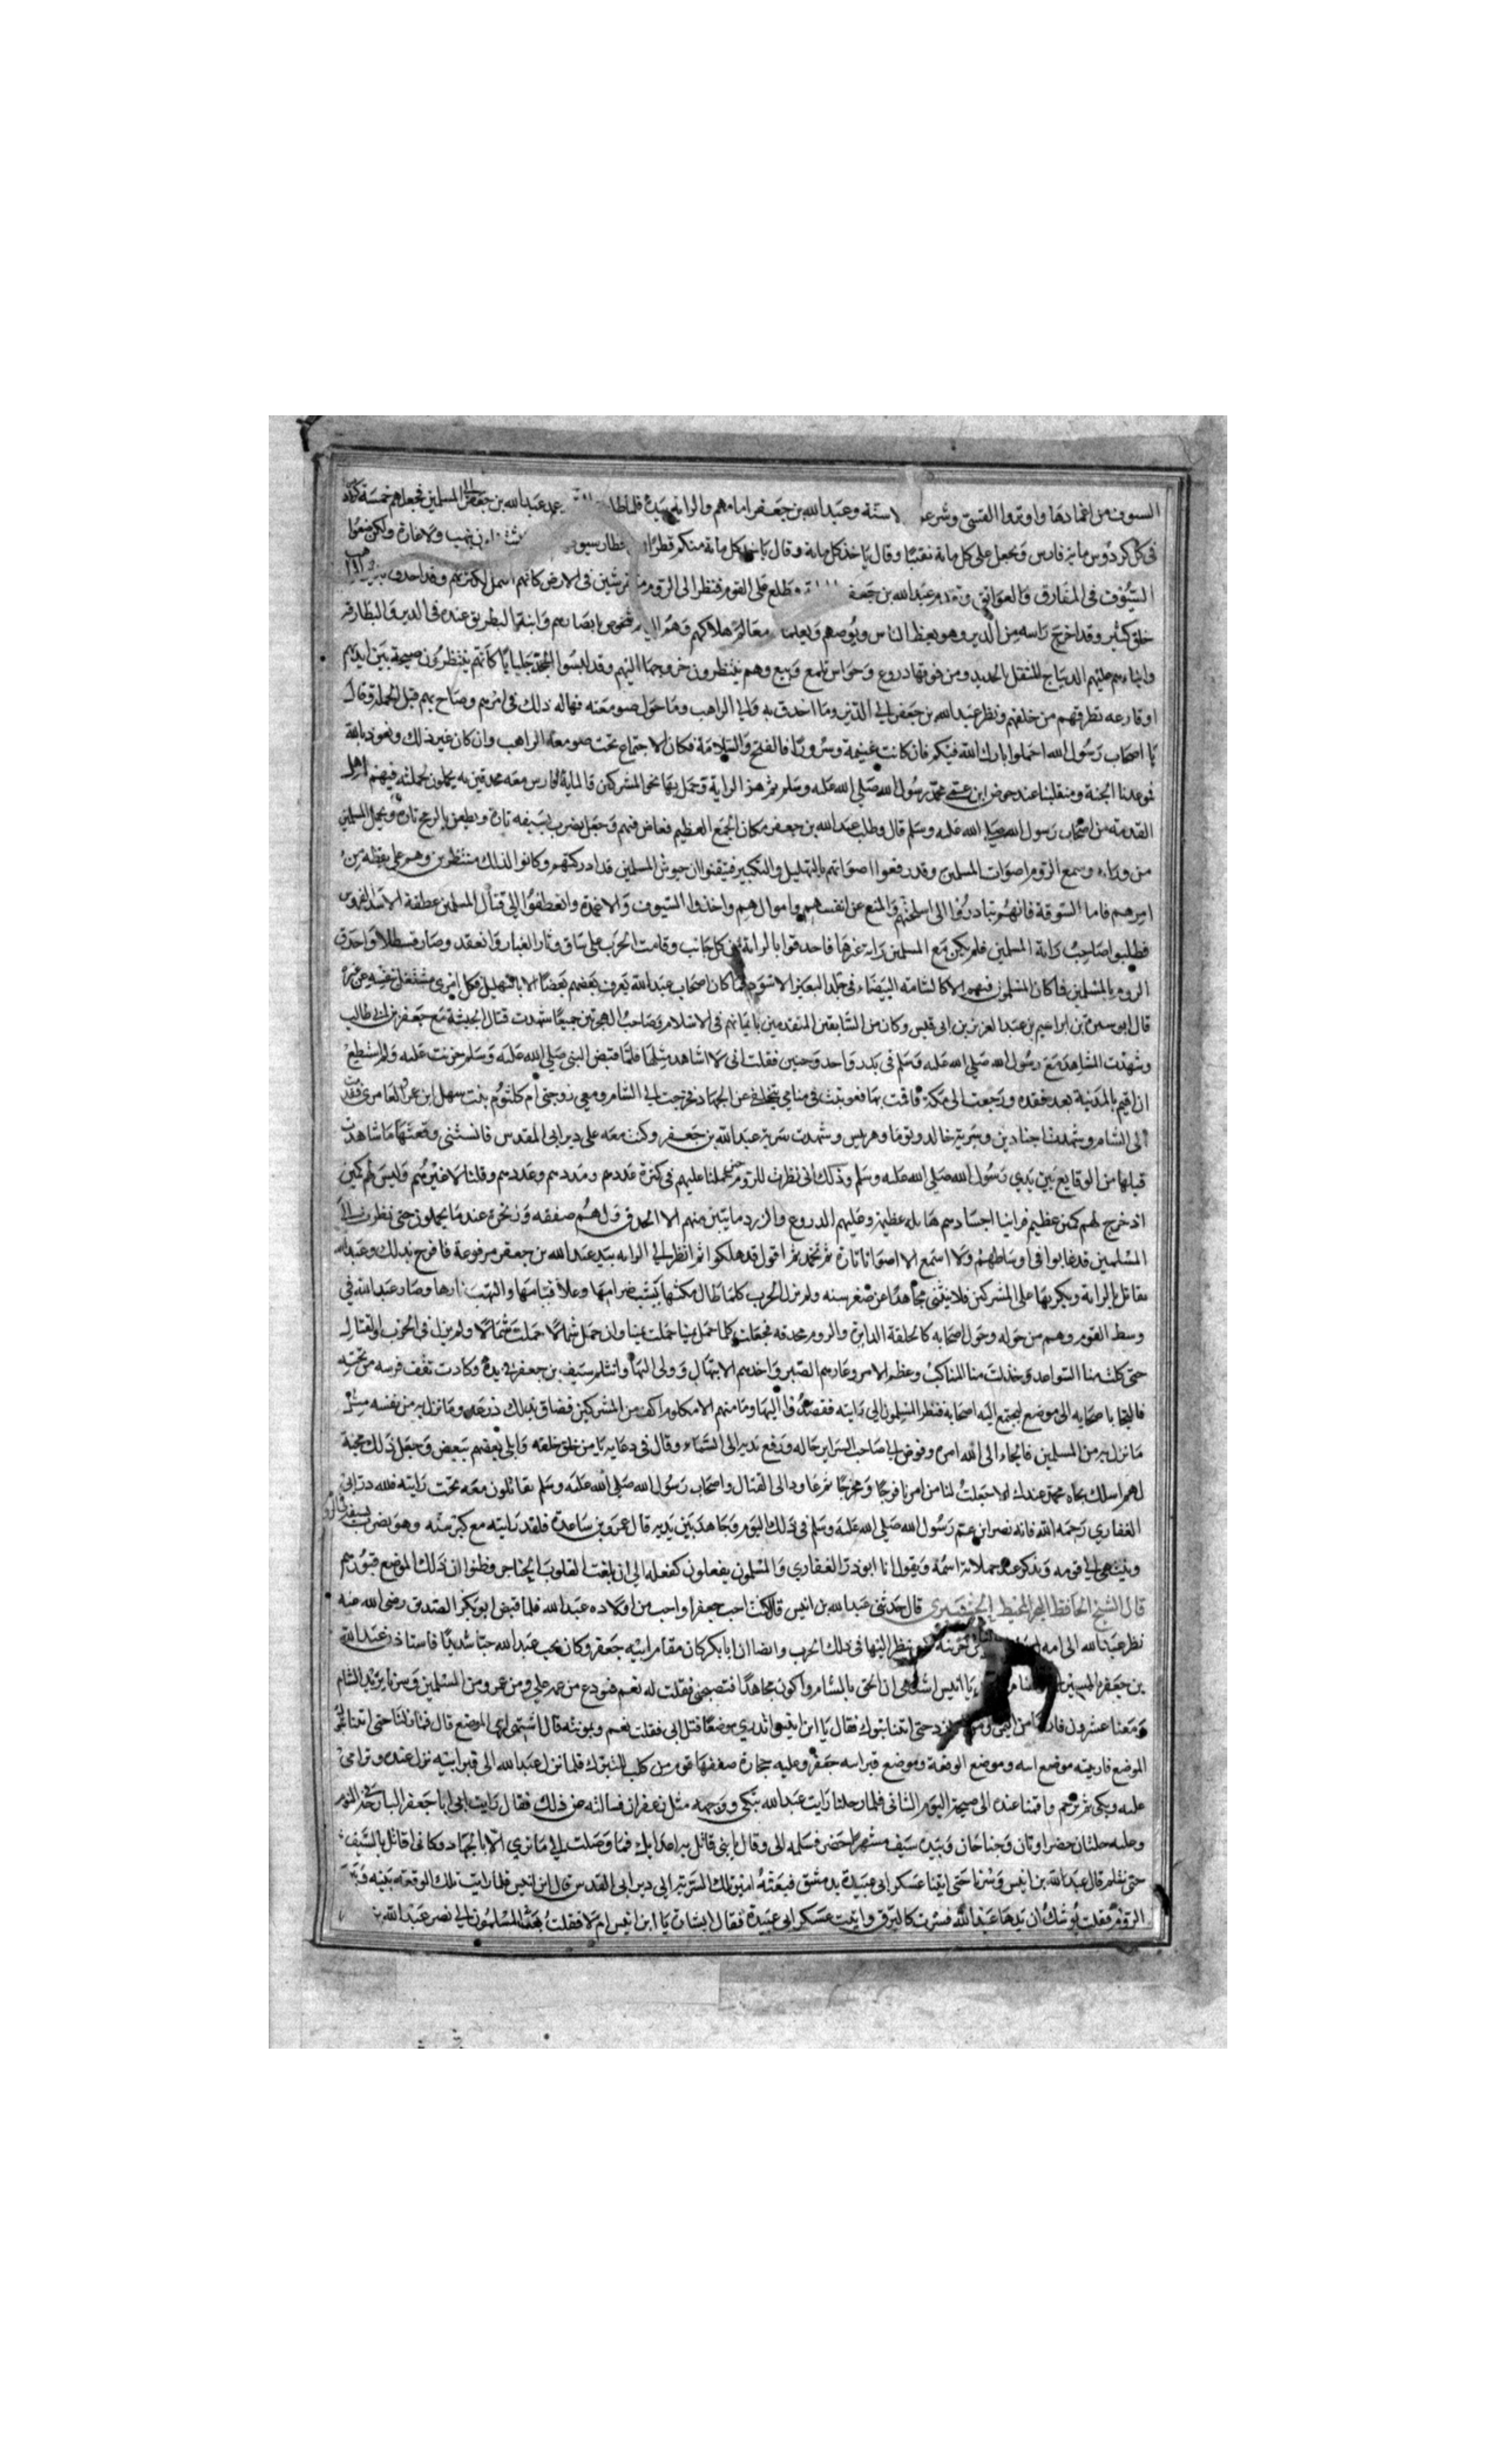 السيوف من اغمادها واوتروا القسي وشرعوا الاسنة وعبد الله بن جعفر امامهم والراية بيده فلما عمد عبد الله بن جعفر الى المسلمين فجعلهم خمسة
في كل كردوس ماية فارس وجعل على كل ماية نقيبا وقال ياخذ كل ماية وقال ياخذ كل ماية منكم قطرا ولا غارة ولكن ضعوا
السيوف في المفارق والعواتق وتقدم عبد الله بن جعفر طلع على القوم فنظر الى الروم في الارض كانهم النمل لكثرتهم وقد احدق
خلق كثير وقد اخرج راسه من الدير وهو يعظ الناس ويوصيهم ويعلمهم معالم هلاكهم وهم اليه شخوص بابصارهم وابنة البطريق عنده في الدير والبطارقة
وابناءهم عليهم الديباج المثقل بالحديد ومن فوقها دروع تلمع وهم ينتظرون كانهم ينتظرون صيحة بين ايديهم
او قارعه تطرقهم من خلفهم ونظر عبد الله بن جعفر الى الدير وما احدق به والى الراهب وما حول صومعته فهاله ذلك في امرهم وصاح بهم قبل الحملة وقال
يا اصحاب رسول الله احملوا بارك الله فيكم فان كانت غنيمة وسرورا فالفتح والسلامة فكان الاجتماع تحت صومعة الراهب وان كان غير ذلك ونعوذ بالله
فوعدنا الجنة ومنقلبنا عند حوض ابن عمي محمد رسول الله صلى الله عليه وسلم ثم هز الراية وحمل بها نحو المشركين فالماية فارس معه محدقين به يحملون لحملته فيهم اهل
القدمة من اصحاب رسول الله صلى الله عليه وسلم قال وطلب عبد الله بن جعفر مكان الجمع العظيم فغاص فيهم وجعل يضرب بسيفه تارة ويطعن بالرمح تارة وحمل المسلمين
من وراءه وسمع الروم اصوات المسلمين وقد رفعوا اصواتهم بالتهليل والتكبير فتيقنوا ان جيوش المسلمين قد ادركتهم وكانوا لذلك منتظرين وهم على يقظه من
امرهم فاما السوقة فانهم تبادروا الى اسلحتهم والمنع عن انفسهم واموالهم واخذوا السيوف والاعمدة وانعطفوا الى قتال المسلمين عطفة الاسد
فطلبوا صاحب راية المسلمين فلم يكن مع المسلمين راية غيرها فاحدقوا بالراية من كل جانب وقامت الحرب على ساق وثار الغبار وانعقد وصار قسطلا واحدق
الروم بالمسلمين فما كان المسلمون فيهم الا كالشامة البيضاء في جلد البعير الاسود فما كان اصحاب عبد الله يعرف بعضهم بعضا الا بالتهليل فكل امرئ مشتغل بنفسه عن غيره
قال ابو سبرة بن ابراهيم بن عبد العزيز بن ابي قيس وكان من السابقين المتقدمين بايمانهم في الاسلام وصاحب الهجرتين جميعا شهدت قتال الحبشة مع جعفر بن ابي طالب
وشهدت المشاهد مع رسول الله صلى الله عليه وسلم في بدر واحد وحنين فقلت اني لا اشاهد مثلها فلما قبض النبي صلى الله عليه وسلم حزنت عليه ولم استطع
ان اقيم بالمدينة بعد فقده ورجعت الى مكة فاقمت بها فعوتبت في منامي بتخلفي عن الجهاد فخرجت الى الشام ومعي زوجتي ام كلثوم بنت سهل ابن عمرو العامري فقدمت
الى الشام وشهدنا اجنادين وسرية خالد وتوما وهربيس وشهدت سرية عبد الله بن جعفر وكنت معه على دير ابي المقدس فانستني وقعتها ما شاهدت
قبلها من الوقايع بين يدي رسول الله صلى الله عليه وسلم وذلك اني نظرت للروم حين حملنا عليهم في كثرة عددهم ومددهم وعددهم وقلنا لا غيرهم وليس لهم كمين
اذ خرج لهم كمين عظيم فراينا اجسادهم هايلة عظيمة وعليهم الدروع والزرد ما يتبين منهم الا الحدق ولهم صفقه وزمجرة عندما يحملون حتى نظرت الى
المسلمين قد غابوا في اوساطهم ولا اسمع الا اصواتا تارة ثم تخمد ثم اقول قد هلكوا ثم انظر الى الراية بيد عبد الله بن جعفر مرفوعة فافرح بذلك وعبد الله
يقاتل بالراية ويكر بها على المشركين فلا ينثني مجاهدا عن صغر سنه ولم تزل الحرب كلما طال مكثها يشب ضرامها وعلا قتامها والتهبت نارها وصار عبد الله في
وسط القوم وهم من حوله وحول اصحابه كالحلقة الدايرة والروم محدقه فجعلت كلما حمل يمينا حملت يمينا وان حمل شمالا حملت شمالا ولم يزل في الحرب والقتال
حتى كلت منا السواعد وخذلت منا المناكب وعظم الامر وعازهم الصبر واخذهم الابتهال وولى النهار وانثلم سيف بن جعفر في يده وكادت تقف فرسه من تحته
فالتجا باصحابه الى موضع ليجتمع اليه اصحابه فنظر المسلمون الى رايته فقصدوا اليها وما منهم الا مكلوم اكف من المشركين فضاق بذلك ذرعه وما نزل به من نفسه مثل
ما نزل به من المسلمين فالجاء الى الله امره وفوض الى صاحب السراير حاله ورفع يديه الى السماء وقال في دعايه يا من خلق خلقه وابلى بعضهم ببعض وجعل ذلك محنة
لهم اسلك بجاه محمد عندك الا جعلت لنا من امرنا فرجا ومخرجا ثم عاود الى القتال واصحاب رسول الله صلى الله عليه وسلم يقاتلون معه تحت رايته فلله در ابي ذر
الغفاري رحمه الله فانه نصر ابن عم رسول الله صلى الله عليه وسلم في ذلك اليوم وجاهد بين يديه قال عمرو بن ساعدة فلقد رايته مع كبر سنه وهو يضرب بسيفه في الروم
وينتمي الى قومه ويذكر عند حملاته اسمه ويقول انا ابو ذر الغفاري والمسلمون يفعلون كفعله الى ان بلغت القلوب الحناجر وظنوا ان ذلك الموضع قبورهم
قال الشيخ الحافظ البحر المحيط قال حدثني عبد الله بن انيس قال كنت احب جعفرا واحب من اولاده عبد الله فلما قبض ابو بكر الصديق رضي الله عنه
نظر عبد الله الى امه حزينة نظر اليها في ذلك الحرب وايضا ان ابا بكر كان مقام ابيه جعفر وكان يحب عبد الله حبا شديدا فاستاذن عبد الله
بن جعفر يا انيس اشتهي ان الحق بالشام واكون مجاهدا فتصحبني فقلت له نعم فودع من عمه علي ومن عمر ومن المسلمين وسرنا نريد الشام
ومعنا عشرون فارسا من حتى اتينا تبوك فقال يا ابن انيس اتدري موضع قتل ابي فقلت نعم وبموته قال اشتهي ارى الموضع قال فما زلنا حتى اتينا
الموضع فاريته موضع ابيه وموضع الوقعة وموضع قبر ابيه جعفر وعليه حجارة صففها قوم من كلب للتبرك فلما نزل عبد الله الى قبر ابيه نزل عنده وترامى
عليه وبكى ثم ترحم واقمنا عنده الى صبيحة اليوم الثاني فلما رحلنا رايت عبد الله يبكي ووجهه مثل زعفران فسالته عن ذلك فقال رايت ابي ابا جعفر البارحة في النوم
وعليه حلتان خضراوتان وجناحان وبيده سيف مشهر اخضر فسلمه الي وقال يا بني قاتل به اعدايك فما وصلت الى ما ترى الا بالجهاد وكاني اقاتل بالسيف
حتى تثلم قال عبد الله بن انيس وسرنا حتى اتينا عسكر ابي عبيدة بدمشق فبعثه امير تلك السرية الى دير ابي القدس قال ابن انيس فلما رايت تلك الوقعة بينه وبين
الروم فقلت يوشك ان يدها عبد الله فسرت كالبرق واتيت عسكر ابي عبيدة فقال ابشارة يا ابن انيس ام لا فقلت ابعث المسلمون الى نصر عبد الله بن